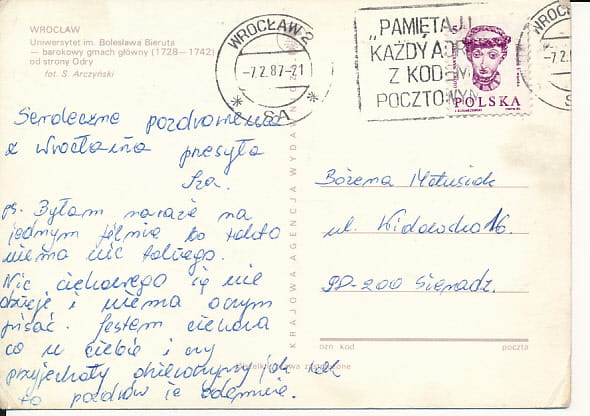 WROCŁAW
Uniwersytet im. Bolesława Bieruta
— barokowy gmach główny (1728—1742)
od strony Odry
fot. S. Arczyński
WROCŁAW 2
-7.2.87-21
* SA *
„PAMIĘTAJ
KAŻDY
Z KODEM
POCZTOWYM
5
POLSKA
WROC
-7.2.8
Serdeczne pozdrowienia
z Wrocławia przesyła
Iza.
ps. Byłam na razie na
jednym filmie bo tak to
niema nic takiego.
Nic ciekawego się nie
dzieje i niema o czym
pisać. Jestem ciekawa
co u Ciebie i czy
przyjechały dziewczyny jak tak
to pozdrów je odemnie.
KRAJOWA AGENCJA WYDAW
Bożena Matusiak
ul. Widawska 16.
98-200 Sieradz.
ozn. kod
poczta